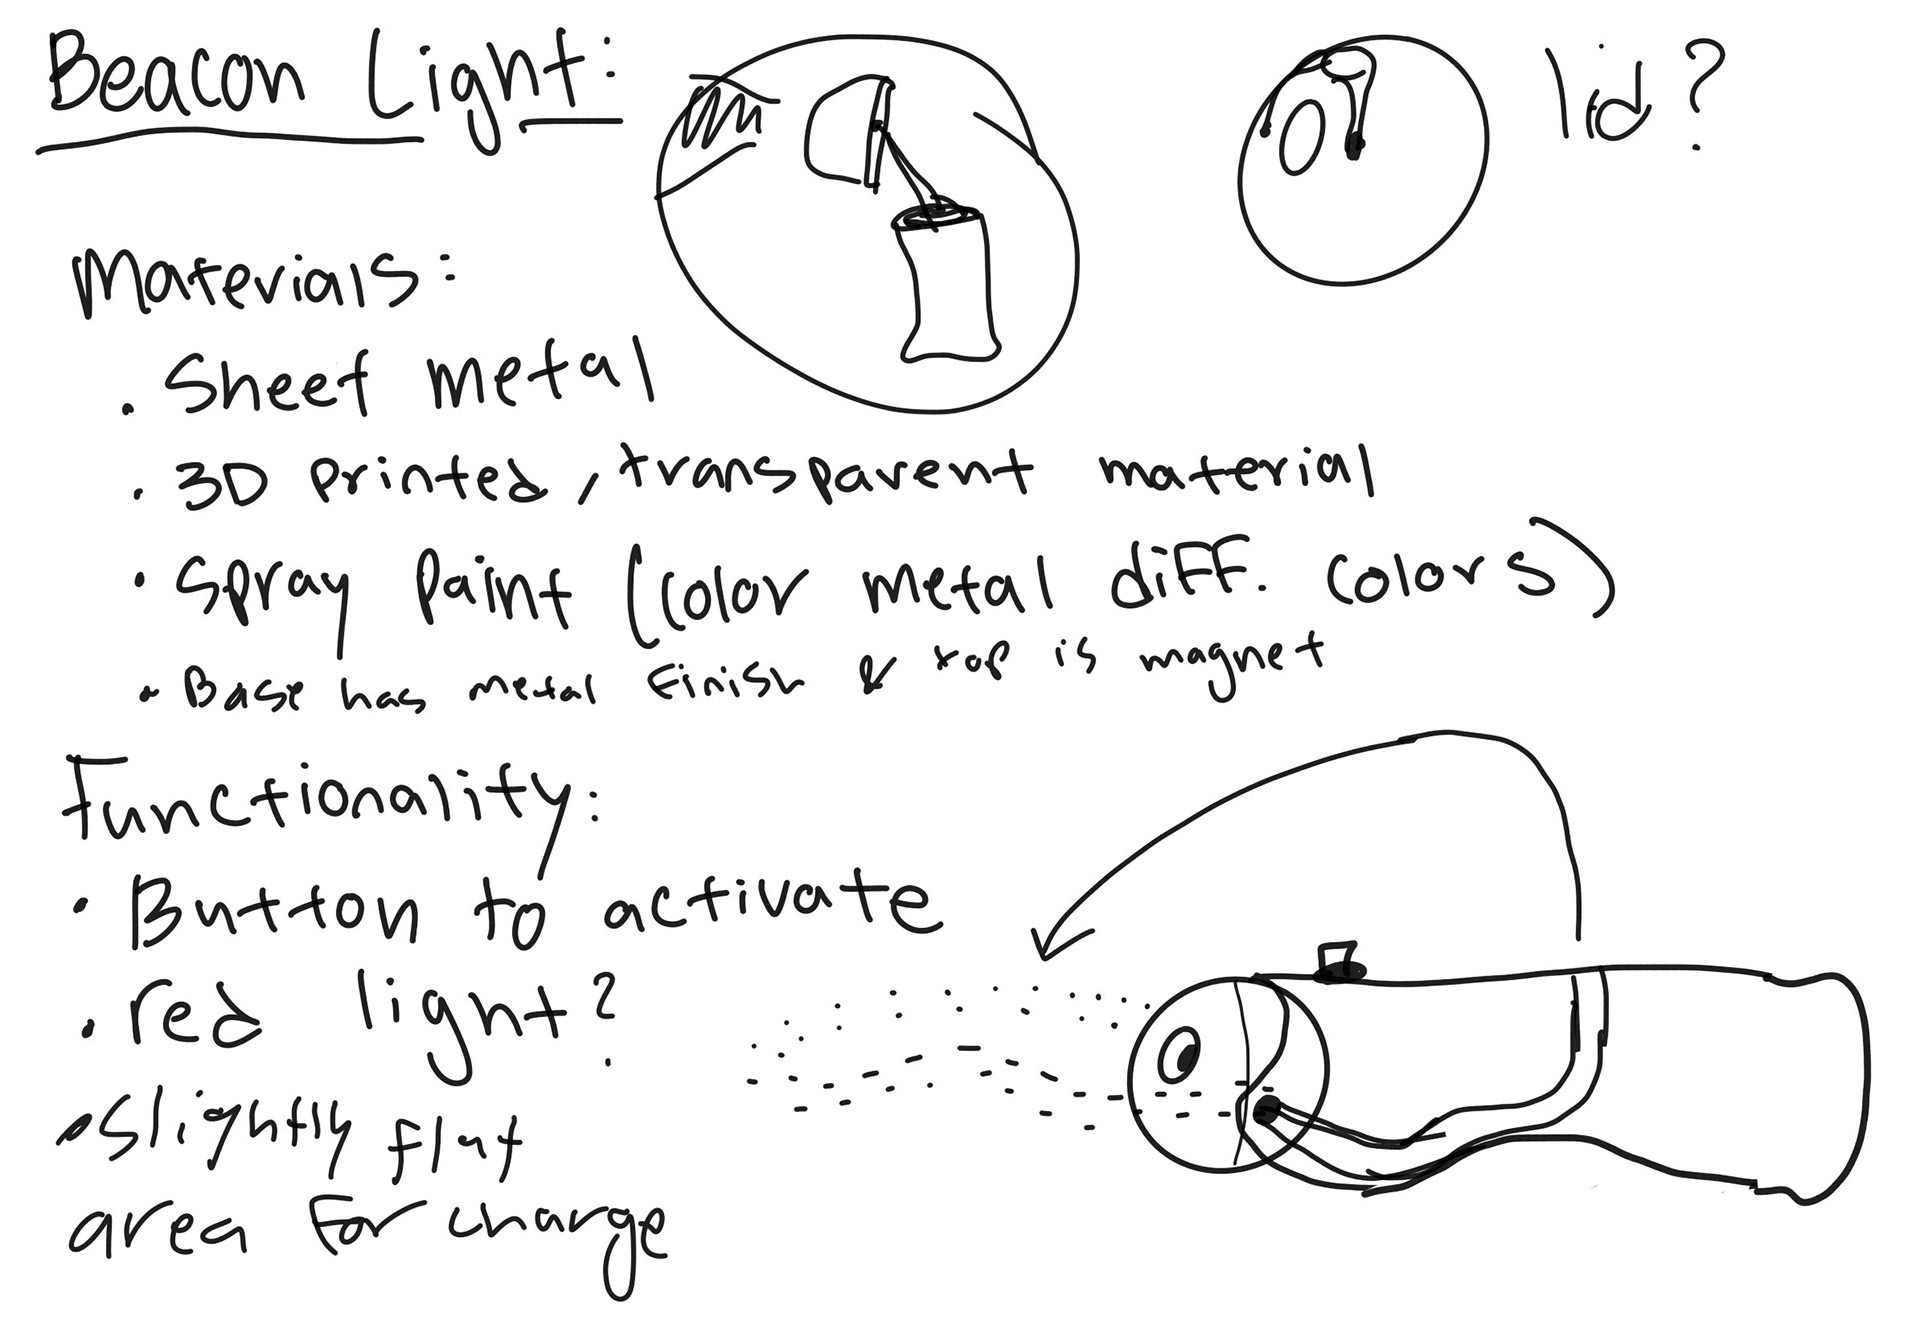 Beacon Light:
lid?
Materials:
. Sheet metal
. 3D printed, transparent material
• Spray Paint (color metal diff. colors)
• Base has metal finish & top is magnet
Functionality:
• Button to activate
. red light?
• slightly flat
area for charge